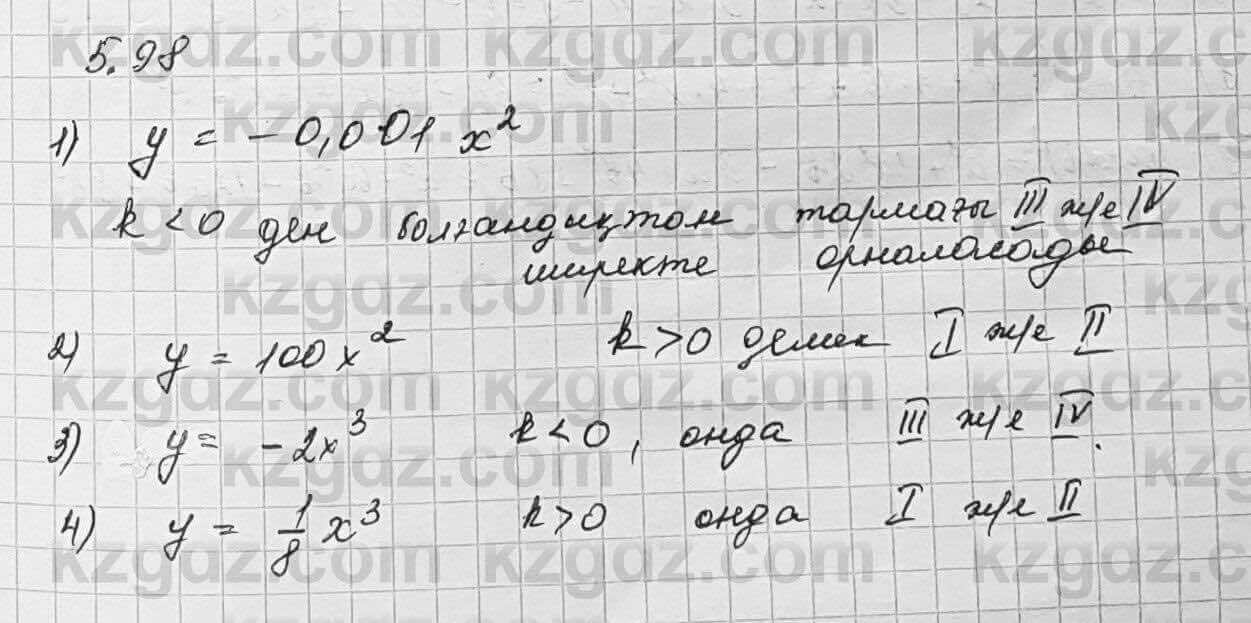 5.98
1) y = -0,001 x²
k < 0 ден болғандықтан тармағы III ж/е IV
ширекте орналасады
2) y = 100x² k > 0 демек I ж/е II
3) y = -2x³ k < 0, онда III ж/е IV.
4) y = 1/8 x³ k > 0 онда I ж/е II
kzgdz.com